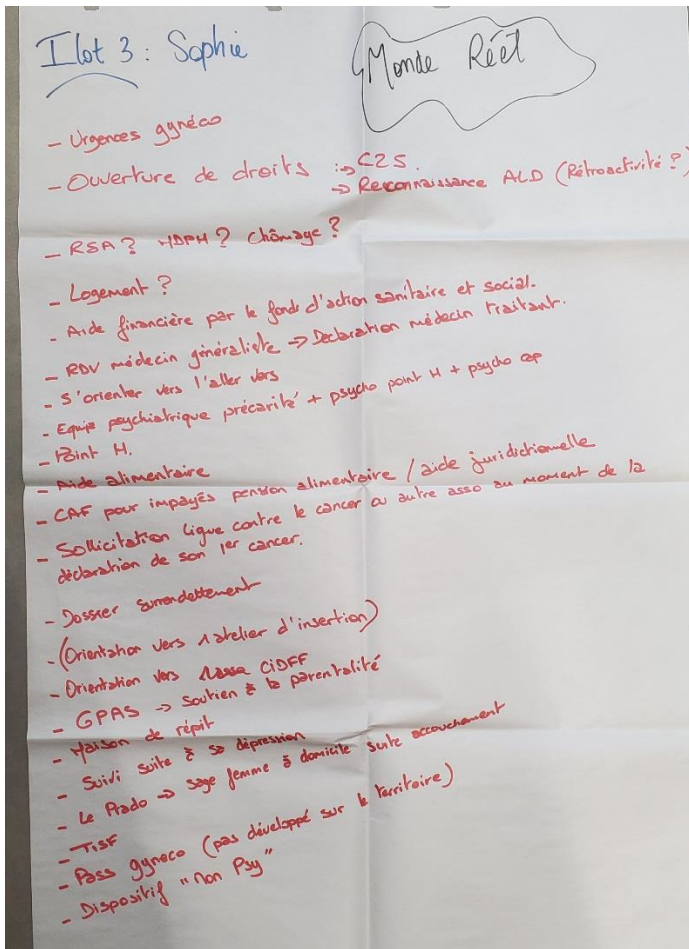 Ilot 3 : Sophie
Monde Réel
- Urgences gynéco
- Ouverture de droits :-> C2S.
-> Reconnaissance ALD (Rétroactivité ?)
- RSA ? MDPH ? Chômage ?
- Logement ?
- Aide financière par le fonds d'action sanitaire et social.
- RDV médecin généraliste -> Déclaration médecin traitant.
- S'orienter vers l'aller vers
- Equipe psychiatrique précarité + psycho point H +  psycho
- Point H.
- Aide alimentaire
- CAF pour impayés pension alimentaire / aide juridictionnelle
- Sollicitation Ligue contre le cancer ou autre asso au moment de la
déclaration de son 1er cancer.
- Dossier surendettement
- (Orientation vers 1 atelier d'insertion)
- Orientation vers CIDFF
- GPAS -> soutien à la parentalité
- Maison de répit
- Suivi suite à sa dépression
- Le Prado -> sage femme à domicile suite accouchement
- TISF
- Pass gyneco (pas développé sur le territoire)
- Dispositif "Mon Psy"